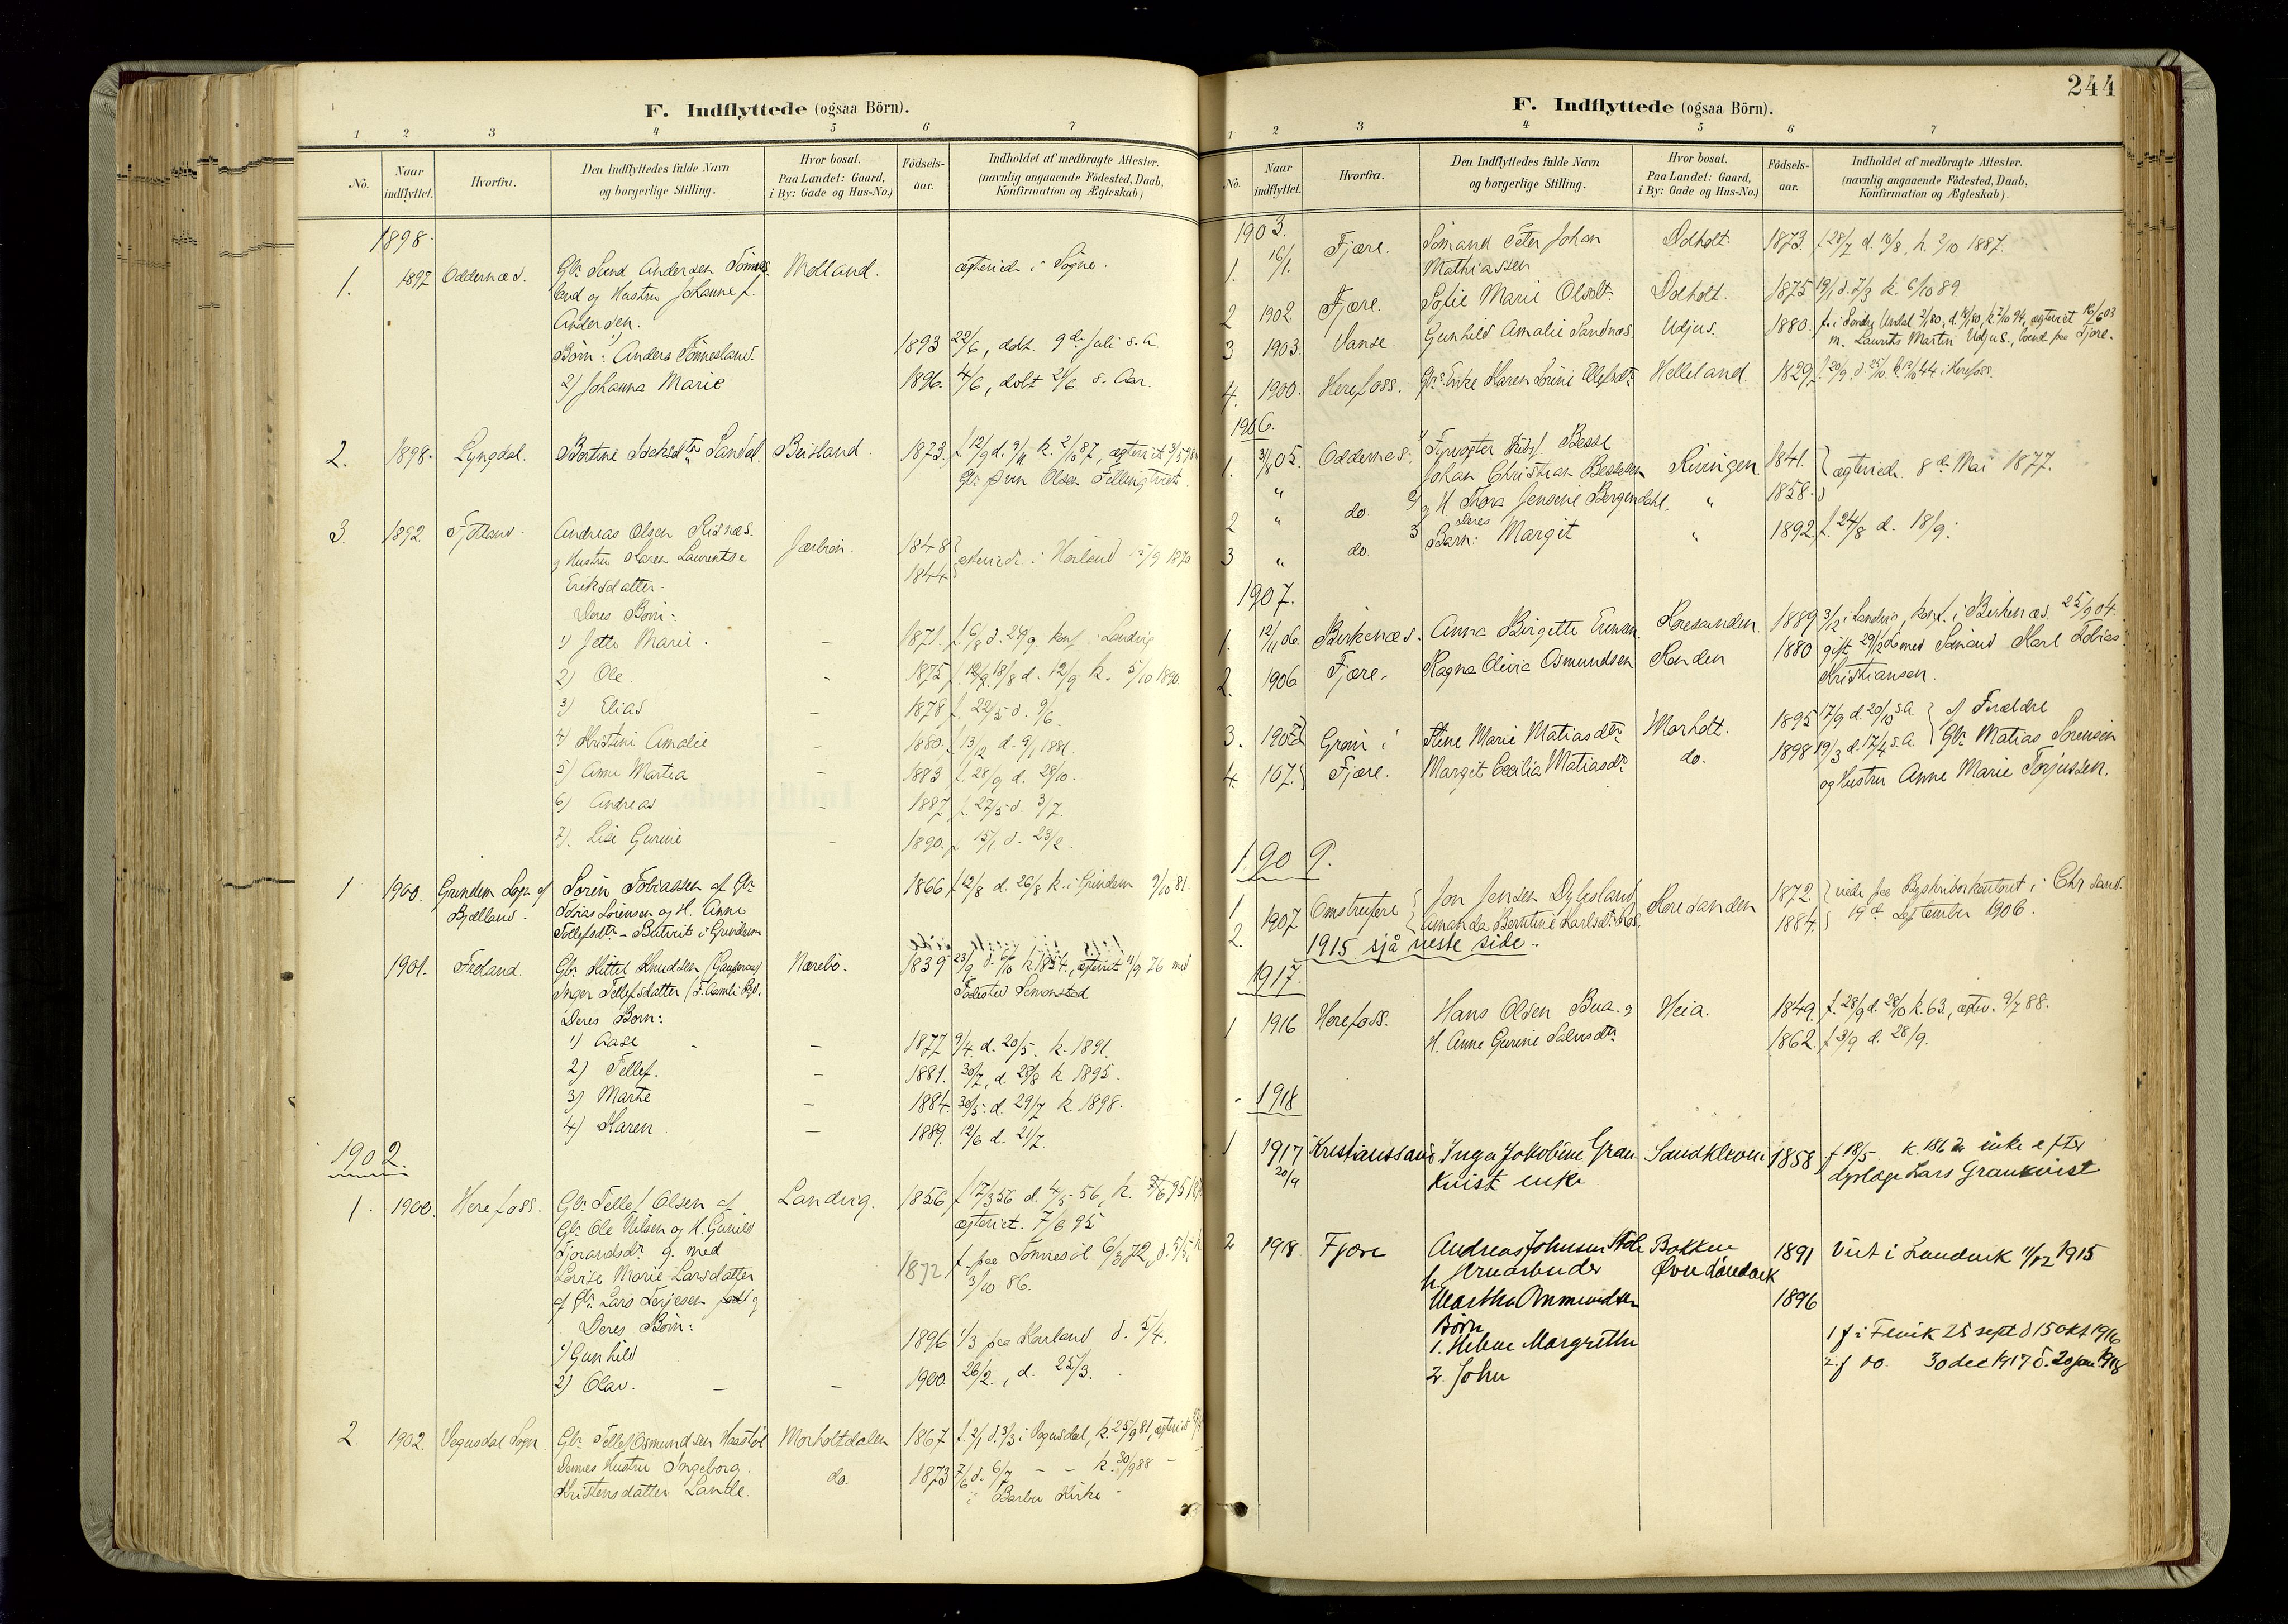 F. Indflyttede (ogsaa Börn).
1 2 3 4 5 6 7
No. Naar indflyttet. Hvorfra. Den Indflyttedes fulde Navn og borgerlige Stilling. Hvor bosat. Paa Landet: Gaard, i By: Gade og Hus-No.) Födsels-aar. Indholdet af medbragte Attester. (navnlig angaaende Födested, Daab, Konfirmation og Ægteskab)
1898.
1. 1897 Oddernæs. Gbr. Andersen Tönnes- Molland. ægteviede i Søgne.
land og Hustru Johanne f.
Andersen.
Børn: Anders Tönnesland. 1893 22/6, døbt 9de Juli s. A.
2) Johanna Marie 1896. 4/6, døbt 21/6 s. Aar.
2. 1898. Lyngdal. Bertine Sandal. Beisland. 1873. f. 12/9 d. 9/11 k. 2/10 87, ægteviet
Gbr. Olsen
3. 1892 Andreas Olsen 1848
og Hustru Karen Laurentse 1844 ægteviede i 1870.
Eriksdatter.
Deres Børn:
1) Marie. – 1871. f. 6/8 d. 29/9. konf. i Landvig
2) Ole. – 1875 18/8 d. 12/9 k. 5/10 1890.
3) Elias – 1878 f. 22/5 d. 9/6.
4) Kristine Amalie – 1880. f. 13/12 d. 9/1 1881.
5) Anne Martea – 1883 f. 28/9 d. 28/10.
6) Andreas – 1887 f. 27/5 d. 3/7.
7). Lise Gurine – 1890. f. 15/1. d. 23/2.
1 1900. Grindem Sogn af Sørin Tobiassen af Gbr. 1866 f. 12/8 d. 26/8 k. i Grindem 9/10 81.
Bjelland. Tobias Sørensen og H. Anne
Tollefsdtr. – i Grindem
1901. Froland. Gbr. Kittel Knudsen Nærebö. 1839 23/9 d. 6/10 k. 1854, ægteviet 11/9 76 med
Inger Tellefsdatter Fødested
Deres Børn:
1) Aase – 1877 9/4. d. 20/5. k. 1891.
2) Tellef. – 1881. 30/7, d. 28/8 k 1895.
3) Marte – 1884. 30/5. d. 29/7 k. 1898.
4) Karen. – 1889. 12/6 d. 21/7.
1902.
1. 1900. Herefoss. Gbr. Tellef Olsen af Landvig. 1856 f. 17/3 56 d. 4/5 56, k.
Gbr. Ole Nilsen og H. Gunild ægteviet. 7/6 95
g. med
Lovise Marie Larsdatter 1872 f. paa Tønnesöl 6/3 72, d. 5/5 k
af Gbr. Lars Terjesen 3/10 86.
Deres Børn:
1) Gunhild 1896 1/3 paa d. 5/4.
2) Olav. – – 1900. 26/2., d. 25/3.
2. 1902. Vegusdal Sogn. Gbr. Tellef Osmundsen Morholtdalen 1867 f. 2/1 d. 3/3 i Vegusdal, k. 25/9 81, ægteviet
Dennes Hustru Ingeborg. do. 1873 7/6 d. 6/7 – – k. 30/9 88 –
Kristensdatter Lande. i Barbu Kirke
244
F. Indflyttede (ogsaa Börn).
1 2 3 4 5 6 7
No. Naar indflyttet. Hvorfra. Den Indflyttedes fulde Navn og borgerlige Stilling. Hvor bosat. Paa Landet: Gaard, i By: Gade og Hus-No.) Födsels-aar. Indholdet af medbragte Attester. (navnlig angaaende Födested, Daab, Konfirmation og Ægteskab).
1903.
1. 16/1. Fjære. Sömand Peter Johan Dolholt. 1873. f. 28/7 d. 10/8, k. 2/10 1887.
Mathiassen
2 1902 Fjære. Sofie Marie Olsdtr. Dolholt. 1875 19/1 d. 7/3 k. 6/10 89
3 1903. Vanse. Gunhild Amalie Sandnæs. Udjus. 1880. f. i Søndre Undal k. 7/10 94, ægteviet 16/6 03
m. Laurits Martin Udjus, boende paa Fjære.
4. 1900. Herefoss. Gbr. Enke Karen Sörine Olefsdtr. Helleland. 1829. f. 20/9. d. 25/10. k. i Herefoss.
1906.
1. 3/8 05. Oddernes. 1) Fyrvogter Besse
Johan Christian Bessesen Riringen. 1841. ægteviede 8de Mai 1877.
2 " do. 2) g H. Thora Jensine Bergendahl. " 1858.
3 " do. 3 deres Barn: Margit " 1892. f. 24/8 d. 18/9.
1907.
1. 12/11 06. Birkenæs. Anna Birgitte Koresanden 1889 3/2 i Landvig, konf. i Birkenæs. 25/9 04.
2. 1906 Fjære. Ragna Olivia Osmundsen Randen 1880 gift 29/12 06 med Sømand Karl Tobias
Kristiansen.
3. Groos i Stine Marie Matiasdtr. Morholt. 1895 17/9 d. 20/10 s.A. af Forældre
4. 107. Fjære. Margit Cecilia Matiasdtr. do. 1898 19/3 d. 17/4 s.A. Gbr. Matias Sörensen
og Hustru Anne Marie Torjussen.
1909.
1 1907 Omstreifere Jon Jensen Koresanden 1872. viede paa Byskriverkontoret i Chr. sand.
2. Amanda Berntine Karlsdtr. 1884. 19de September 1906.
1915 sjå neste side.
1917.
1 1916 Herefoss. Hans Olsen Bua. og Heia. 1849. f. 28/9 d. 28/10 k. 63, ægtev. 9/7 88.
H. Anne Gurine Salvesdtr. 1862. f. 3/9 d. 28/9.
1918
1 1917 Kristianssand Inga Jakobine Gran- Sandkleven 1858 f 18/5. k. 1862 enke efter
20/9 kvist enke dyrlæge Lars Grankvist
2 1918. Fjære Andreas Johnsen Bakken 1891 Viet i Landvik 11/12 1915
h. Øvre Landvik
Martha Ommundsen 1896
Børn 1 f i Fevik 25 sept d 15 okt 1916
1. Helene Margrethe 2. f do. 30 dec 1917 d. 20 jan 1918
2. John